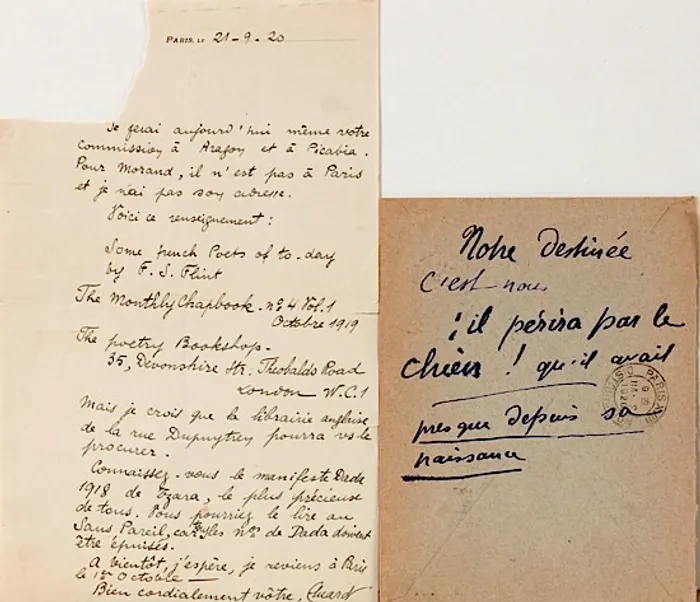 PARIS, LE 21-9-20
Je ferai aujourd'hui même votre
commission à Aragon et à Picabia.
Pour Morand, il n'est pas à Paris
et je n'ai pas son adresse.
Voici ce renseignement :
Some french Poets of to-day
by F. S. Flint
The Monthly Chapbook. nº 4 Vol. 1
Octobre 1919
The poetry Bookshop.
35, Devonshire Str. Theobalds Road
London W.C.1
Mais je crois que la librairie anglaise
de la rue Dupuytren pourra vs le
procurer.
Connaissez-vous le manifeste Dada
1918 de Tzara, le plus précieuse
de tous. Vous pourriez le lire au
Sans Pareil, car les nos de Dada doivent
être épuisés.
A bientôt, j'espère, je reviens à Paris
le 1er Octobre
Bien cordialement vôtre, Eluard
Notre destinée
C'est nous
; il périra par le
chien ! qu'il avait
presque depuis sa
naissance
PARIS